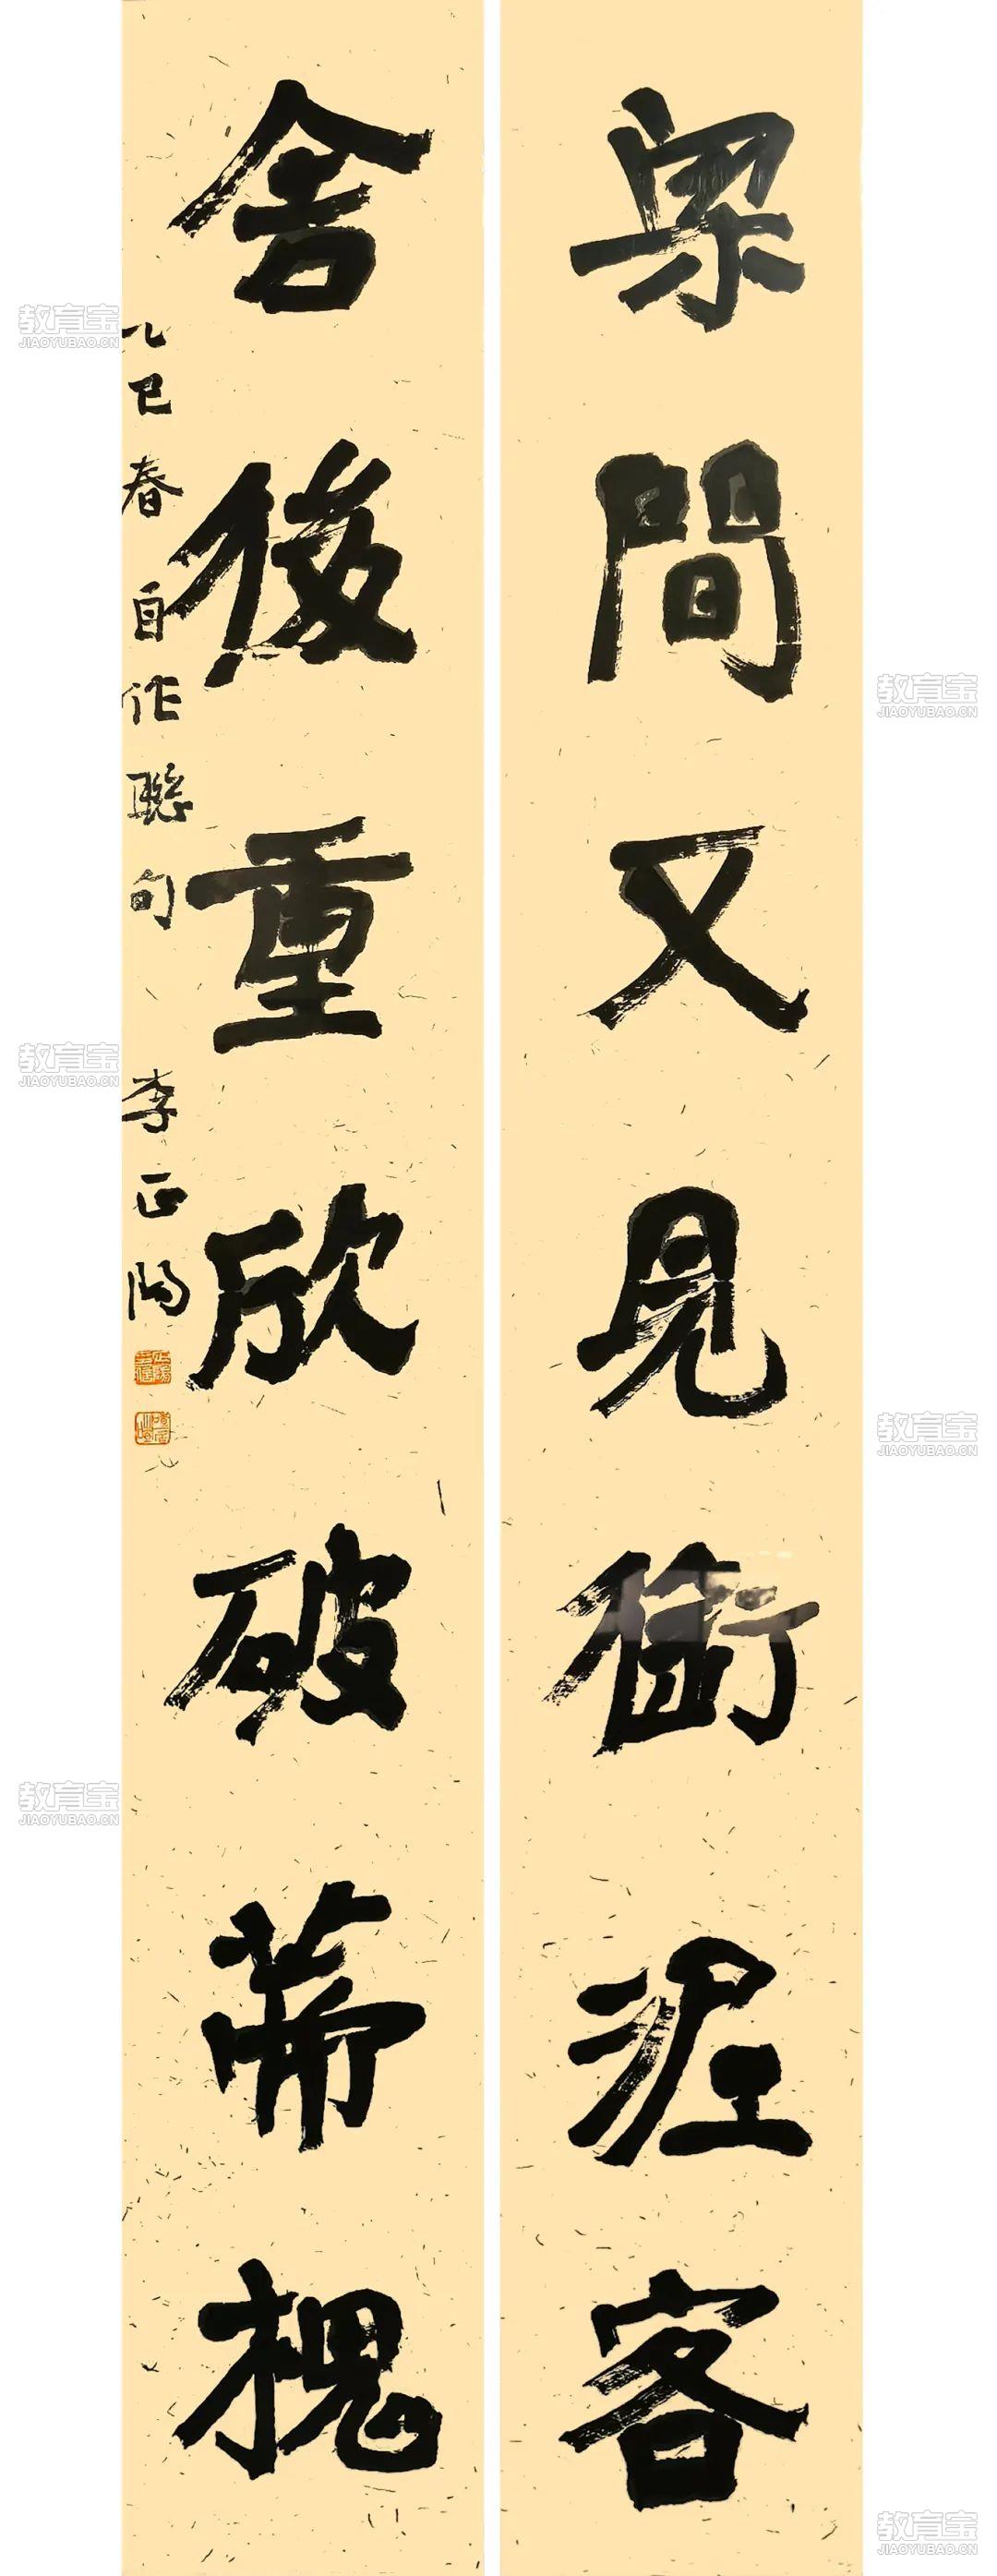 梁間又見銜泥客
舍後重欣破蒂槐
乙巳春自作聯句 李正陽
教育宝
JIAOYUBAO.CN
教育宝
JIAOYUBAO.CN
教育宝
JIAOYUBAO.CN
教育宝
JIAOYUBAO.CN
教育宝
JIAOYUBAO.CN
教育宝
JIAOYUBAO.CN